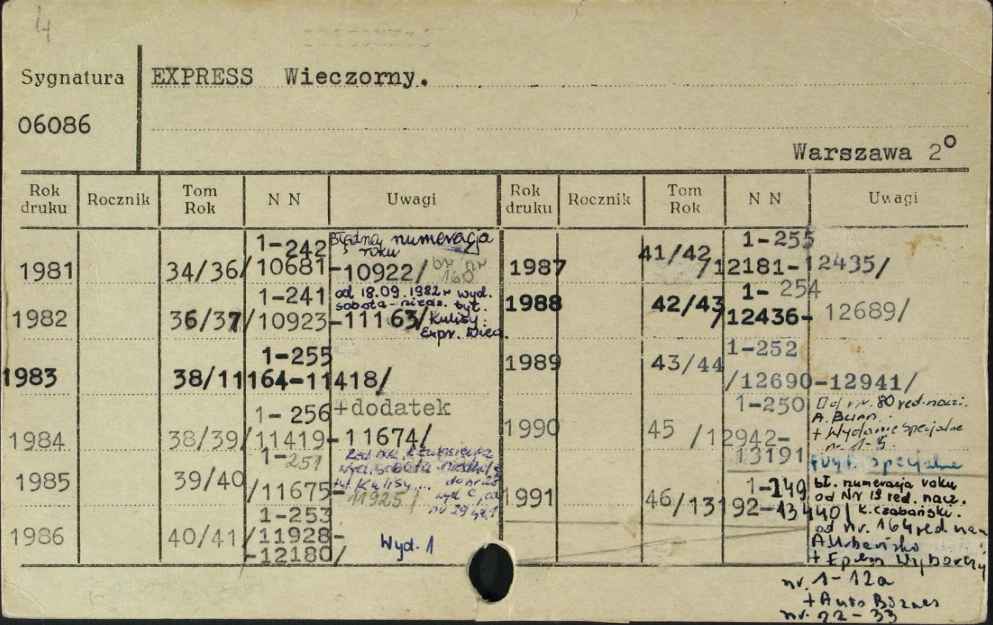 4
Sygnatura EXPRESS Wieczorny.
06086
Warszawa 2°
Rok druku Rocznik Tom Rok N N Uwagi Rok druku Rocznik Tom Rok N N Uwagi
1981 34/36/ 1-242 10681-10922/ Błędna numeracja roku br nr 160
1982 36/37/ 1-241 10923-11163/ od 18.09.1982 r wyd. sobota-niedz. tyt. Kulisy
1983 38/ 1-255 11164-11418/
1984 38/39/ 1-256 11419-11674/ +dodatek
1985 39/40 1-251 /11675-11925/ Kulisy...
1986 40/41/ 1-253 11928-12180/ Wyd. 1
1987 41/42 1-255 /12181-12435/
1988 42/43 1-254 /12436-12689/
1989 43/44 1-252 /12690-12941/
1990 45 1-250 /12942-13191 Od nr. 80 red. nacz.
+ Wydanie specjalne
nr. 1-5.
1991 46/ 1-249 13192-13440/ bł. numeracja roku
od Nr 19 red. nacz.
K. Czabański.
od nr. 164 red nacz
nr. 1-12a
+ Auto Biznes
nr. 22-33